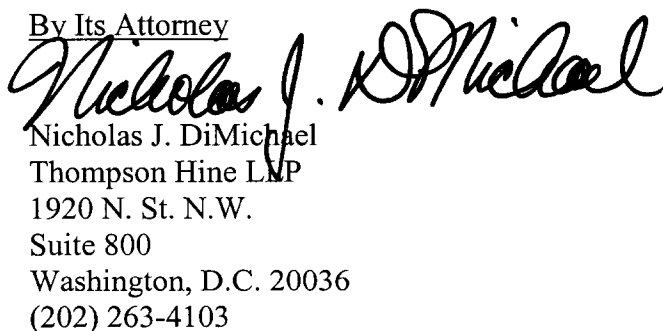 By Its Attorney
Nicholas J. DiMichael
Nicholas J. DiMichael
Thompson Hine LLP
1920 N. St. N.W.
Suite 800
Washington, D.C. 20036
(202) 263-4103